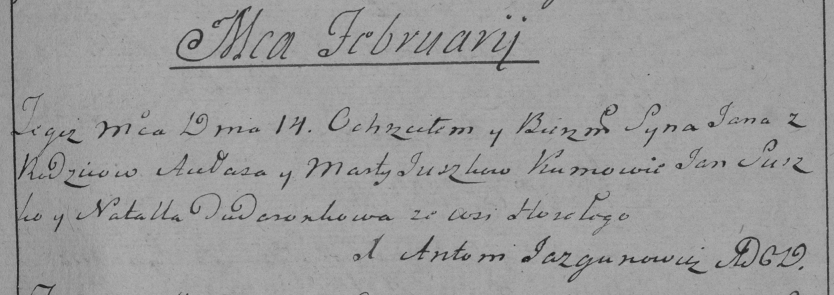 Mca Februarij
Tegiż mca Dnia 14. Ochrzciłem y Bierzm Syna Jana z
Rodzicow Audasa y Marty Juszkow Kumowie Jan Susz
ko y Natalla Dudaronkowa ze wsi Horełogo
X Antoni Jazgunowicz